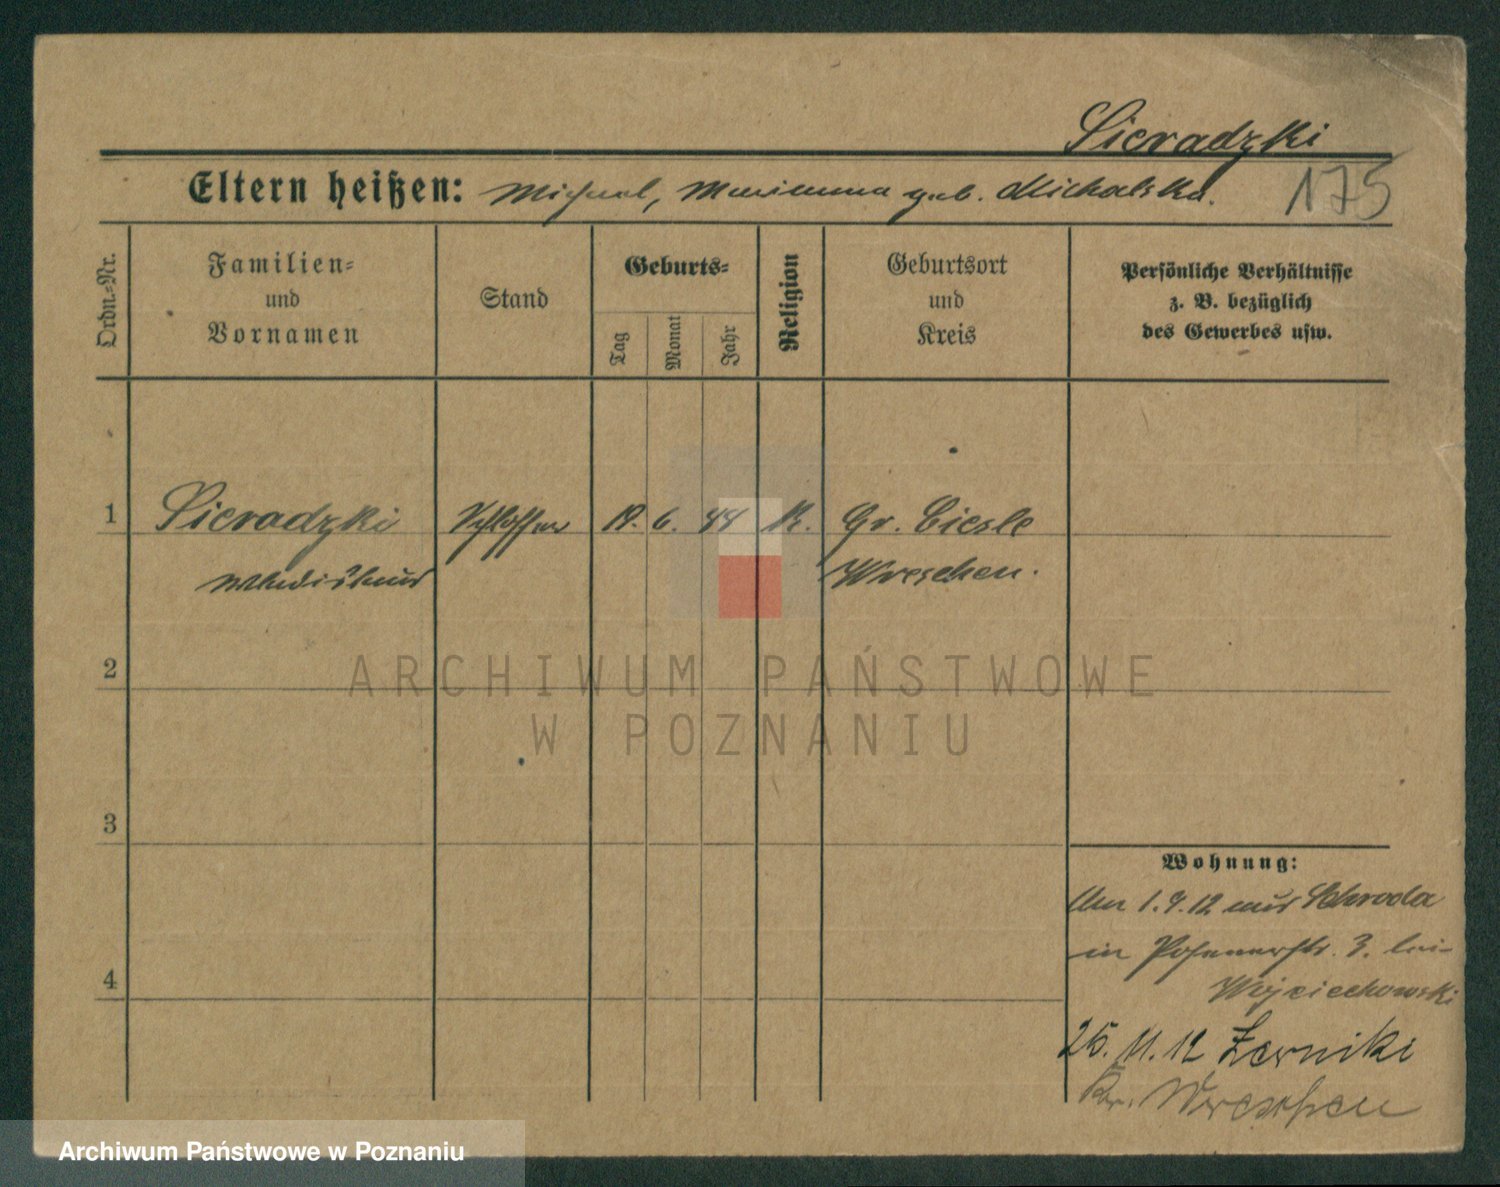 Sieradzki
Eltern heißen: Michael, Marianna geb. Michalska.
175
Ordn.-Nr.
Familien-
und
Vornamen
Stand
Geburts-
Tag
Monat
Jahr
Religion
Geburtsort
und
Kreis
Persönliche Verhältnisse
z. B. bezüglich
des Gewerbes usw.
1 Sieradzki Schlosser 19. 6. 44 K. Gr. Ciesle
Wreschen.
2
3
4
Wohnung:
Am 1.9.12 aus Schroda
in Posenerstr. 3. bei
Wojciechowski
25. 11. 12 Zerniki
Kr. Wreschen
ARCHIWUM PAŃSTWOWE
W POZNANIU
Archiwum Państwowe w Poznaniu